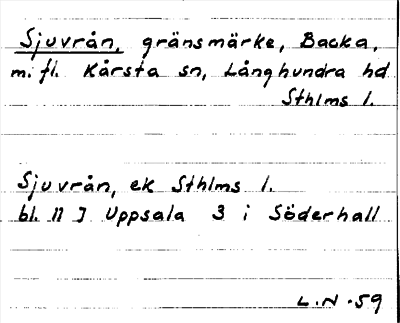 Sjuvrån, gränsmärke, Backa,
m. fl. Kårsta sn, Långhundra hd
Sthlms l.
Sjuvrån, ek Sthlms l.
bl. II J Uppsala 3 i Söderhall
L.N -59